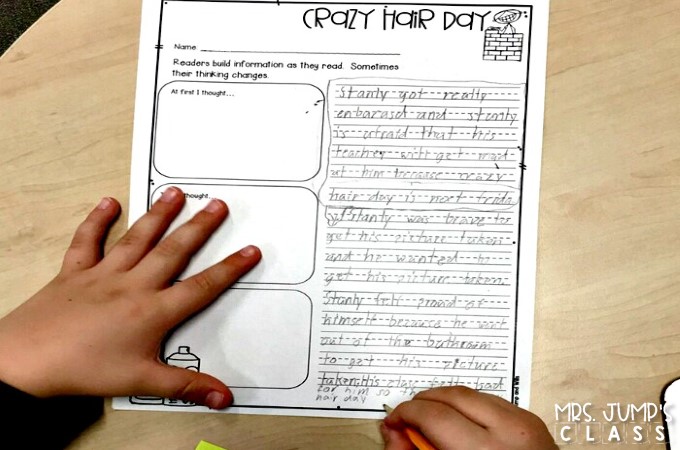 CRAZY HAIR DAY
Name
Readers build information as they read. Sometimes
their thinking changes.
At first I thought...
thought...
Stanly got really
embarasd and stanly
is afraid that his
teacher will get mad
at him because crazy
hair day is next frida
Stanly was brave to
get his picture taken
and he wanted to
get his picture taken.
Stanly felt proud of
himself because he went
out of the bathroom
to get his picture
taken. His class felt bad
for him so
hair day
MRS. JUMP'S
CLASS